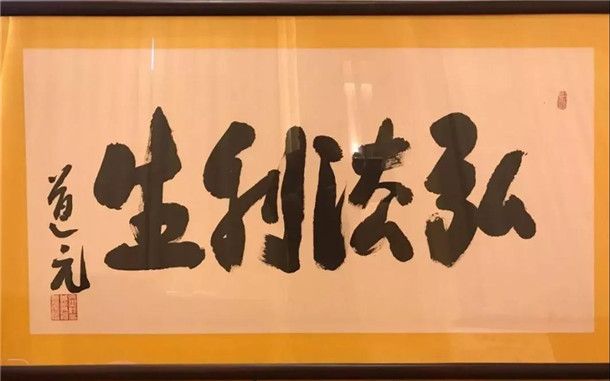 弘法利生
道元